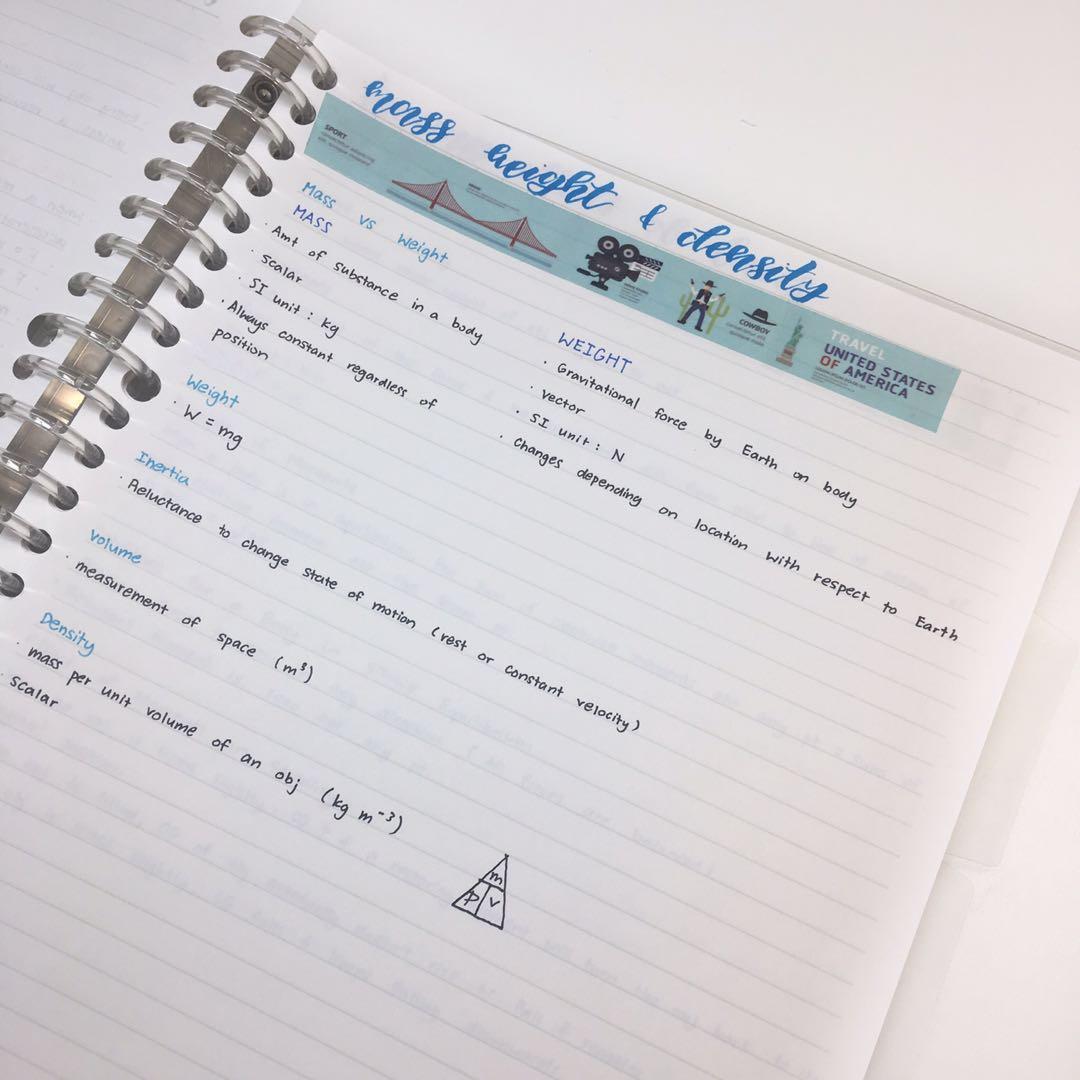 mass weight & density
SPORT
TRAVEL
UNITED STATES
OF AMERICA
COWBOY
Mass vs Weight
MASS
· Amt of substance in a body
· scalar
· SI unit : kg
· Always constant regardless of
position
WEIGHT
· Gravitational force by Earth on body
· vector
· SI unit : N
· Changes depending on location with respect to Earth
Weight
· W = mg
Inertia
· Reluctance to change state of motion (rest or constant velocity)
Volume
· measurement of space (m³)
Density
· mass per unit volume of an obj (kg m⁻³)
· scalar
m
ρ v